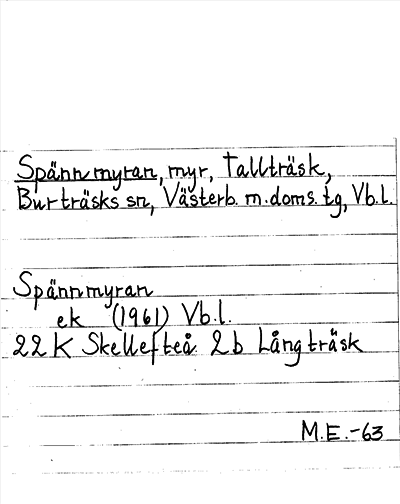 Spännmyran, myr, Tallträsk,
Burträsks sn, Västerb. m. doms. tg, Vb.l.
Spännmyran
ek (1961) Vb.l.
22 K Skellefteå 2b Långträsk
M.E.-63